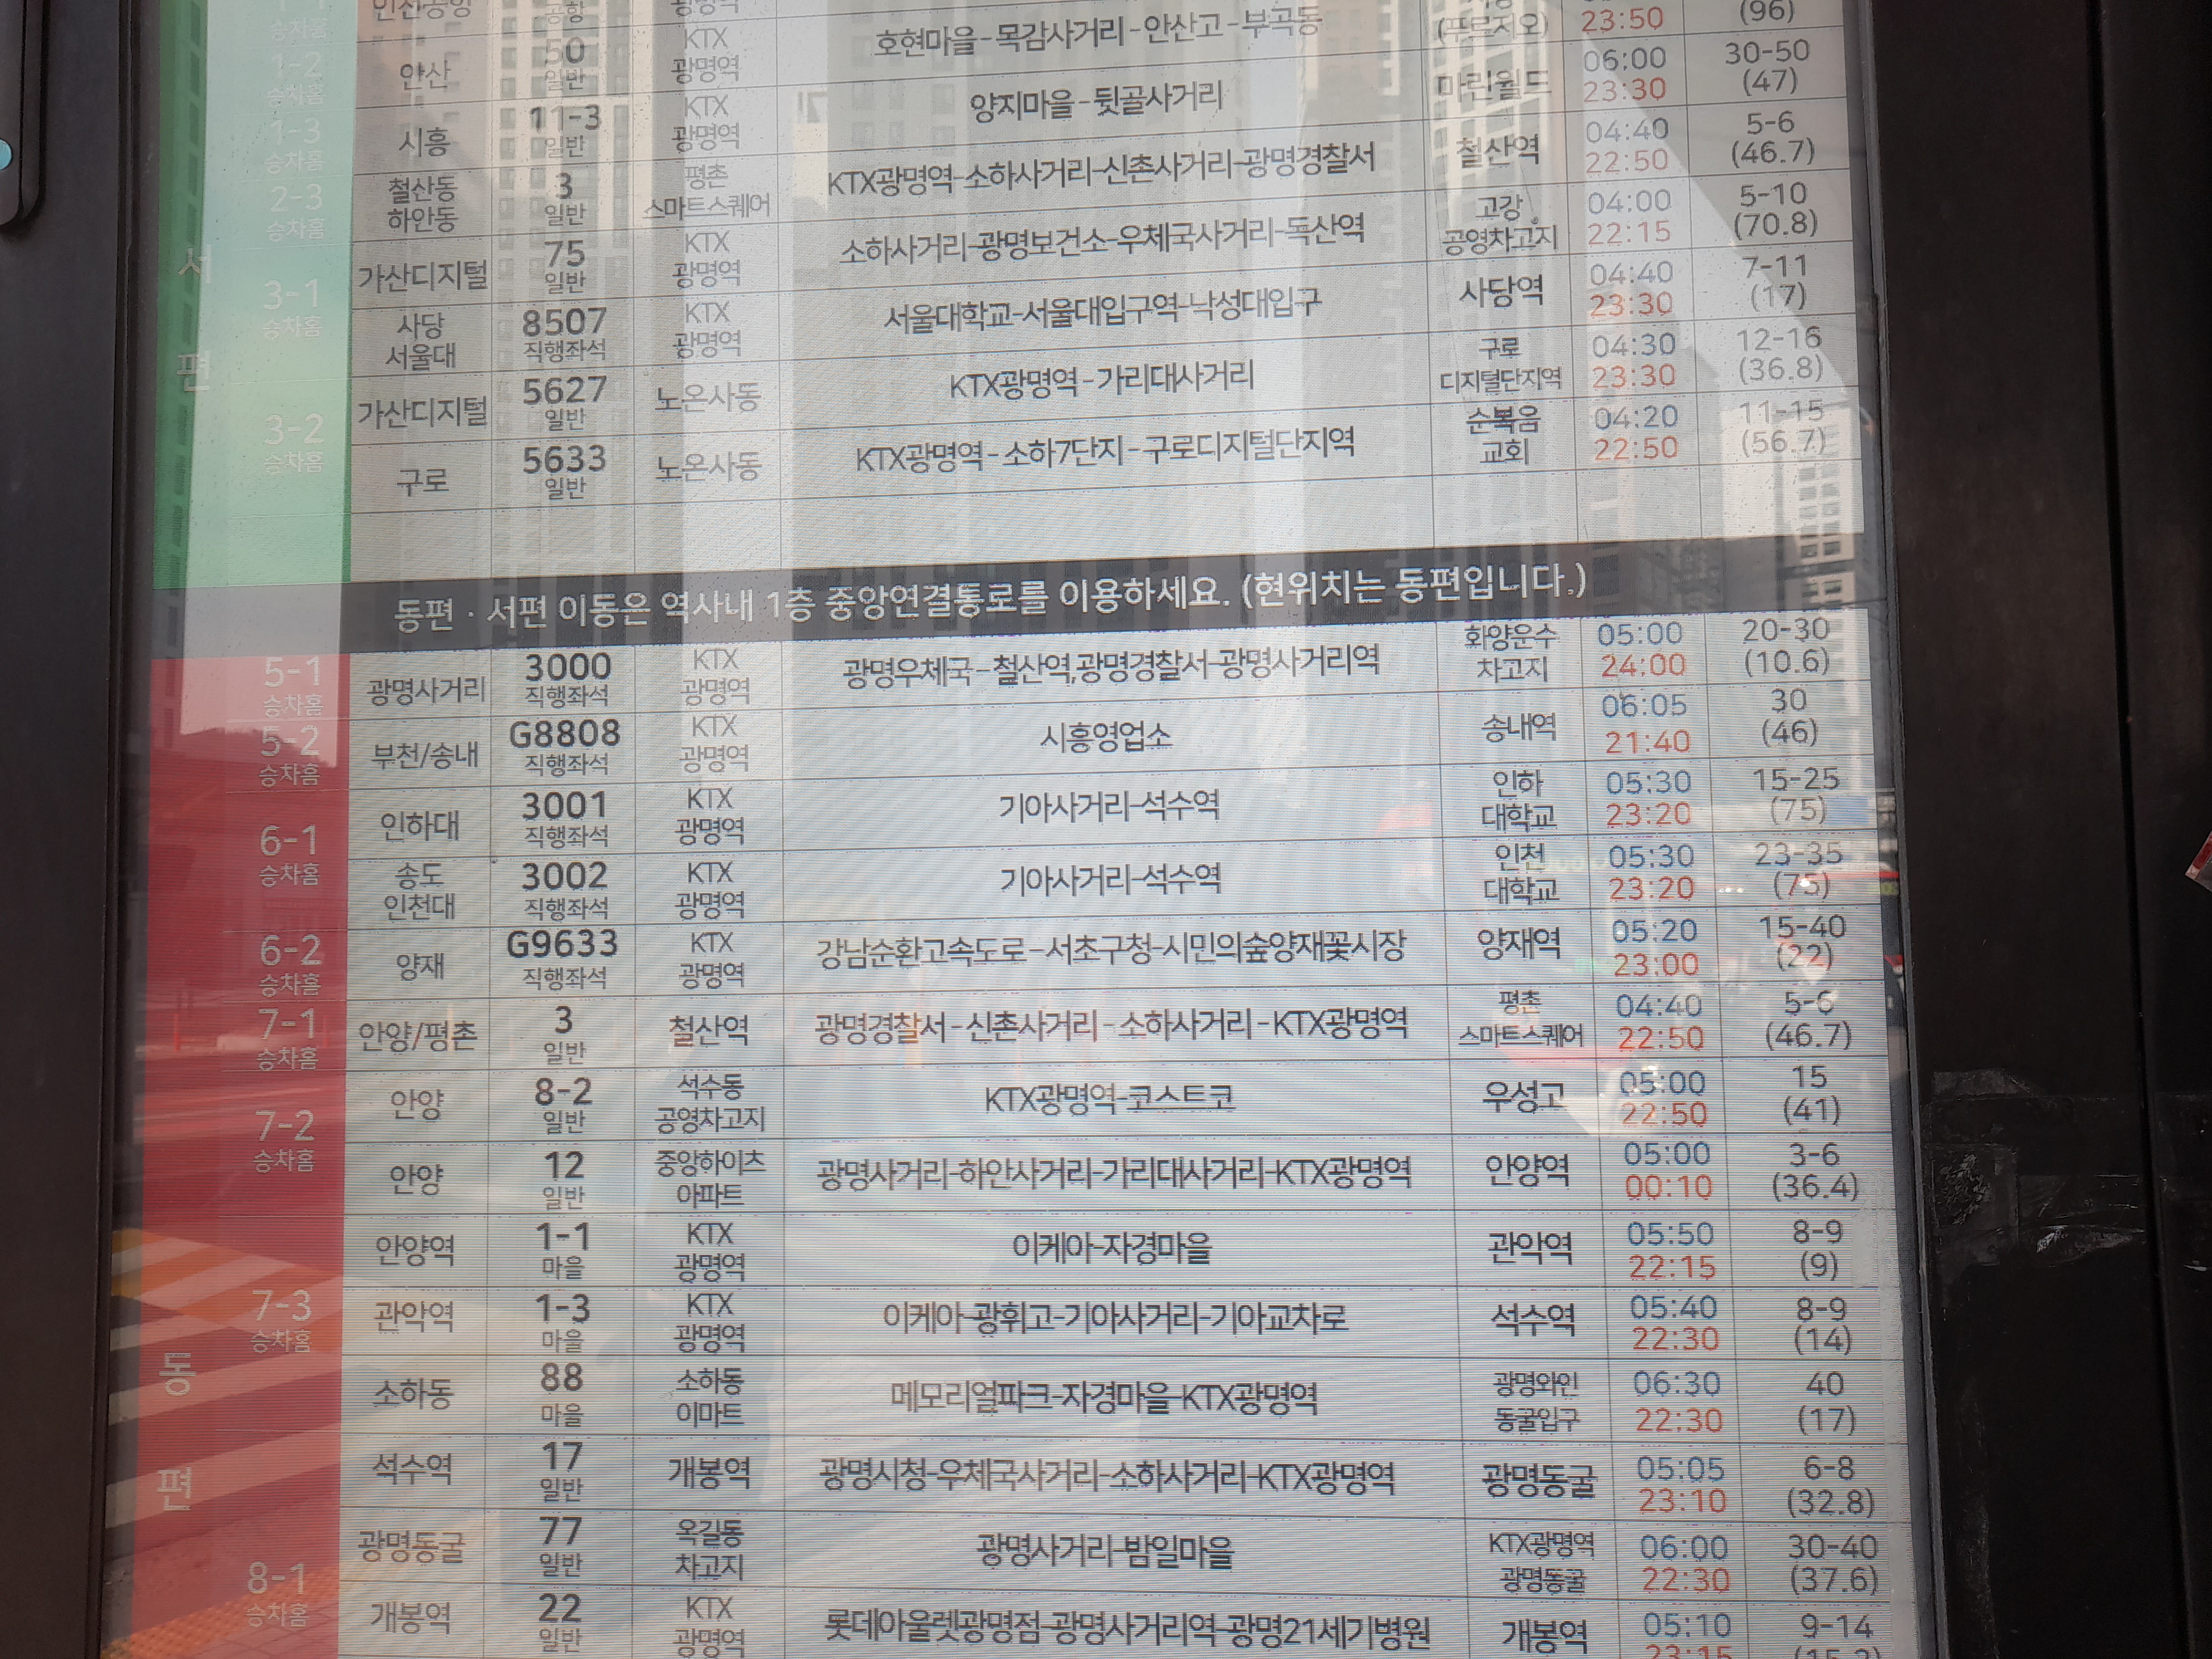 인천공항 공항 광명역
1-2 승차홈
안산 50 일반 KTX 광명역 호현마을-목감사거리-안산고-부곡동 (푸르지오) 23:50 (96)
1-3 승차홈
시흥 11-3 일반 KTX 광명역 양지마을-뒷골사거리 마린월드 06:00 23:30 30-50 (47)
2-3 승차홈
철산동 하안동 3 일반 평촌 스마트스퀘어 KTX광명역-소하사거리-신촌사거리-광명경찰서 철산역 04:40 22:50 5-6 (46.7)
서편
3-1 승차홈
가산디지털 75 일반 KTX 광명역 소하사거리-광명보건소-우체국사거리-독산역 고강 공영차고지 04:00 22:15 5-10 (70.8)
사당 서울대 8507 직행좌석 KTX 광명역 서울대학교-서울대입구역-낙성대입구 사당역 04:40 23:30 7-11 (17)
3-2 승차홈
가산디지털 5627 일반 노온사동 KTX광명역-가리대사거리 구로 디지털단지역 04:30 23:30 12-16 (36.8)
구로 5633 일반 노온사동 KTX광명역-소하7단지-구로디지털단지역 순복음 교회 04:20 22:50 11-15 (56.7)
동편·서편 이동은 역사내 1층 중앙연결통로를 이용하세요. (현위치는 동편입니다.)
5-1 승차홈
광명사거리 3000 직행좌석 KTX 광명역 광명우체국-철산역,광명경찰서-광명사거리역 화양운수 차고지 05:00 24:00 20-30 (10.6)
5-2 승차홈
부천/송내 G8808 직행좌석 KTX 광명역 시흥영업소 송내역 06:05 21:40 30 (46)
6-1 승차홈
인하대 3001 직행좌석 KTX 광명역 기아사거리-석수역 인하 대학교 05:30 23:20 15-25 (75)
송도 인천대 3002 직행좌석 KTX 광명역 기아사거리-석수역 인천 대학교 05:30 23:20 23-35 (75)
6-2 승차홈
양재 G9633 직행좌석 KTX 광명역 강남순환고속도로-서초구청-시민의숲양재꽃시장 양재역 05:20 23:00 15-40 (22)
7-1 승차홈
안양/평촌 3 일반 철산역 광명경찰서-신촌사거리-소하사거리-KTX광명역 평촌 스마트스퀘어 04:40 22:50 5-6 (46.7)
7-2 승차홈
안양 8-2 일반 석수동 공영차고지 KTX광명역-코스트코 우성고 05:00 22:50 15 (41)
안양 12 일반 중앙하이츠 아파트 광명사거리-하안사거리-가리대사거리-KTX광명역 안양역 05:00 00:10 3-6 (36.4)
동편
7-3 승차홈
안양역 1-1 마을 KTX 광명역 이케아-자경마을 관악역 05:50 22:15 8-9 (9)
관악역 1-3 마을 KTX 광명역 이케아-광휘고-기아사거리-기아교차로 석수역 05:40 22:30 8-9 (14)
소하동 88 마을 소하동 이마트 메모리얼파크-자경마을-KTX광명역 광명와인 동굴입구 06:30 22:30 40 (17)
8-1 승차홈
석수역 17 일반 개봉역 광명시청-우체국사거리-소하사거리-KTX광명역 광명동굴 05:05 23:10 6-8 (32.8)
광명동굴 77 일반 옥길동 차고지 광명사거리-밤일마을 KTX광명역 광명동굴 06:00 22:30 30-40 (37.6)
개봉역 22 일반 KTX 광명역 롯데아울렛광명점-광명사거리역-광명21세기병원 개봉역 05:10 23:15 9-14